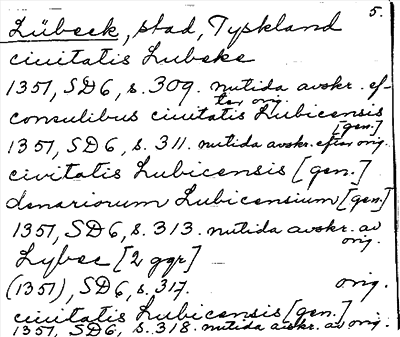 5.
Lübeck, stad, Tyskland
ciuitatis Lubeke
1351, SD6, s. 309. nutida avskr. ef-
ter orig.
consulibus ciuitatis Lubicensis
[gen.]
1351, SD6, s. 311. nutida avskr. efter orig.
civitatis Lubicensis [gen.]
denariorum Lubicensium [gen.]
1351, SD6, s. 313. nutida avskr. av
orig.
Lybec [2 ggr]
(1351), SD6, s. 317. orig.
ciuitatis Lubicensis [gen.]
1351, SD6, s. 318. nutida avskr. av orig.